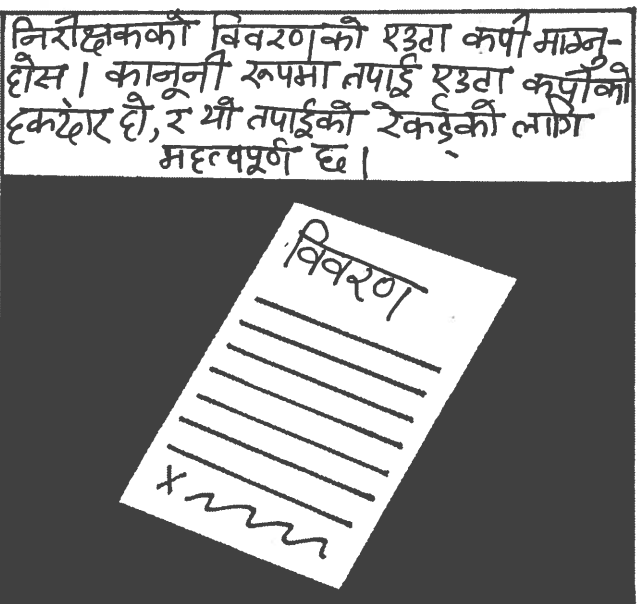 निरीक्षकको विवरणको एउटा कपी माग्नु-
होस। कानूनी रूपमा तपाई एउटा कपीको
हकदार हो, र यो तपाईको रेकर्ड्को लागि
महत्वपूर्ण छ।
विवरण
x